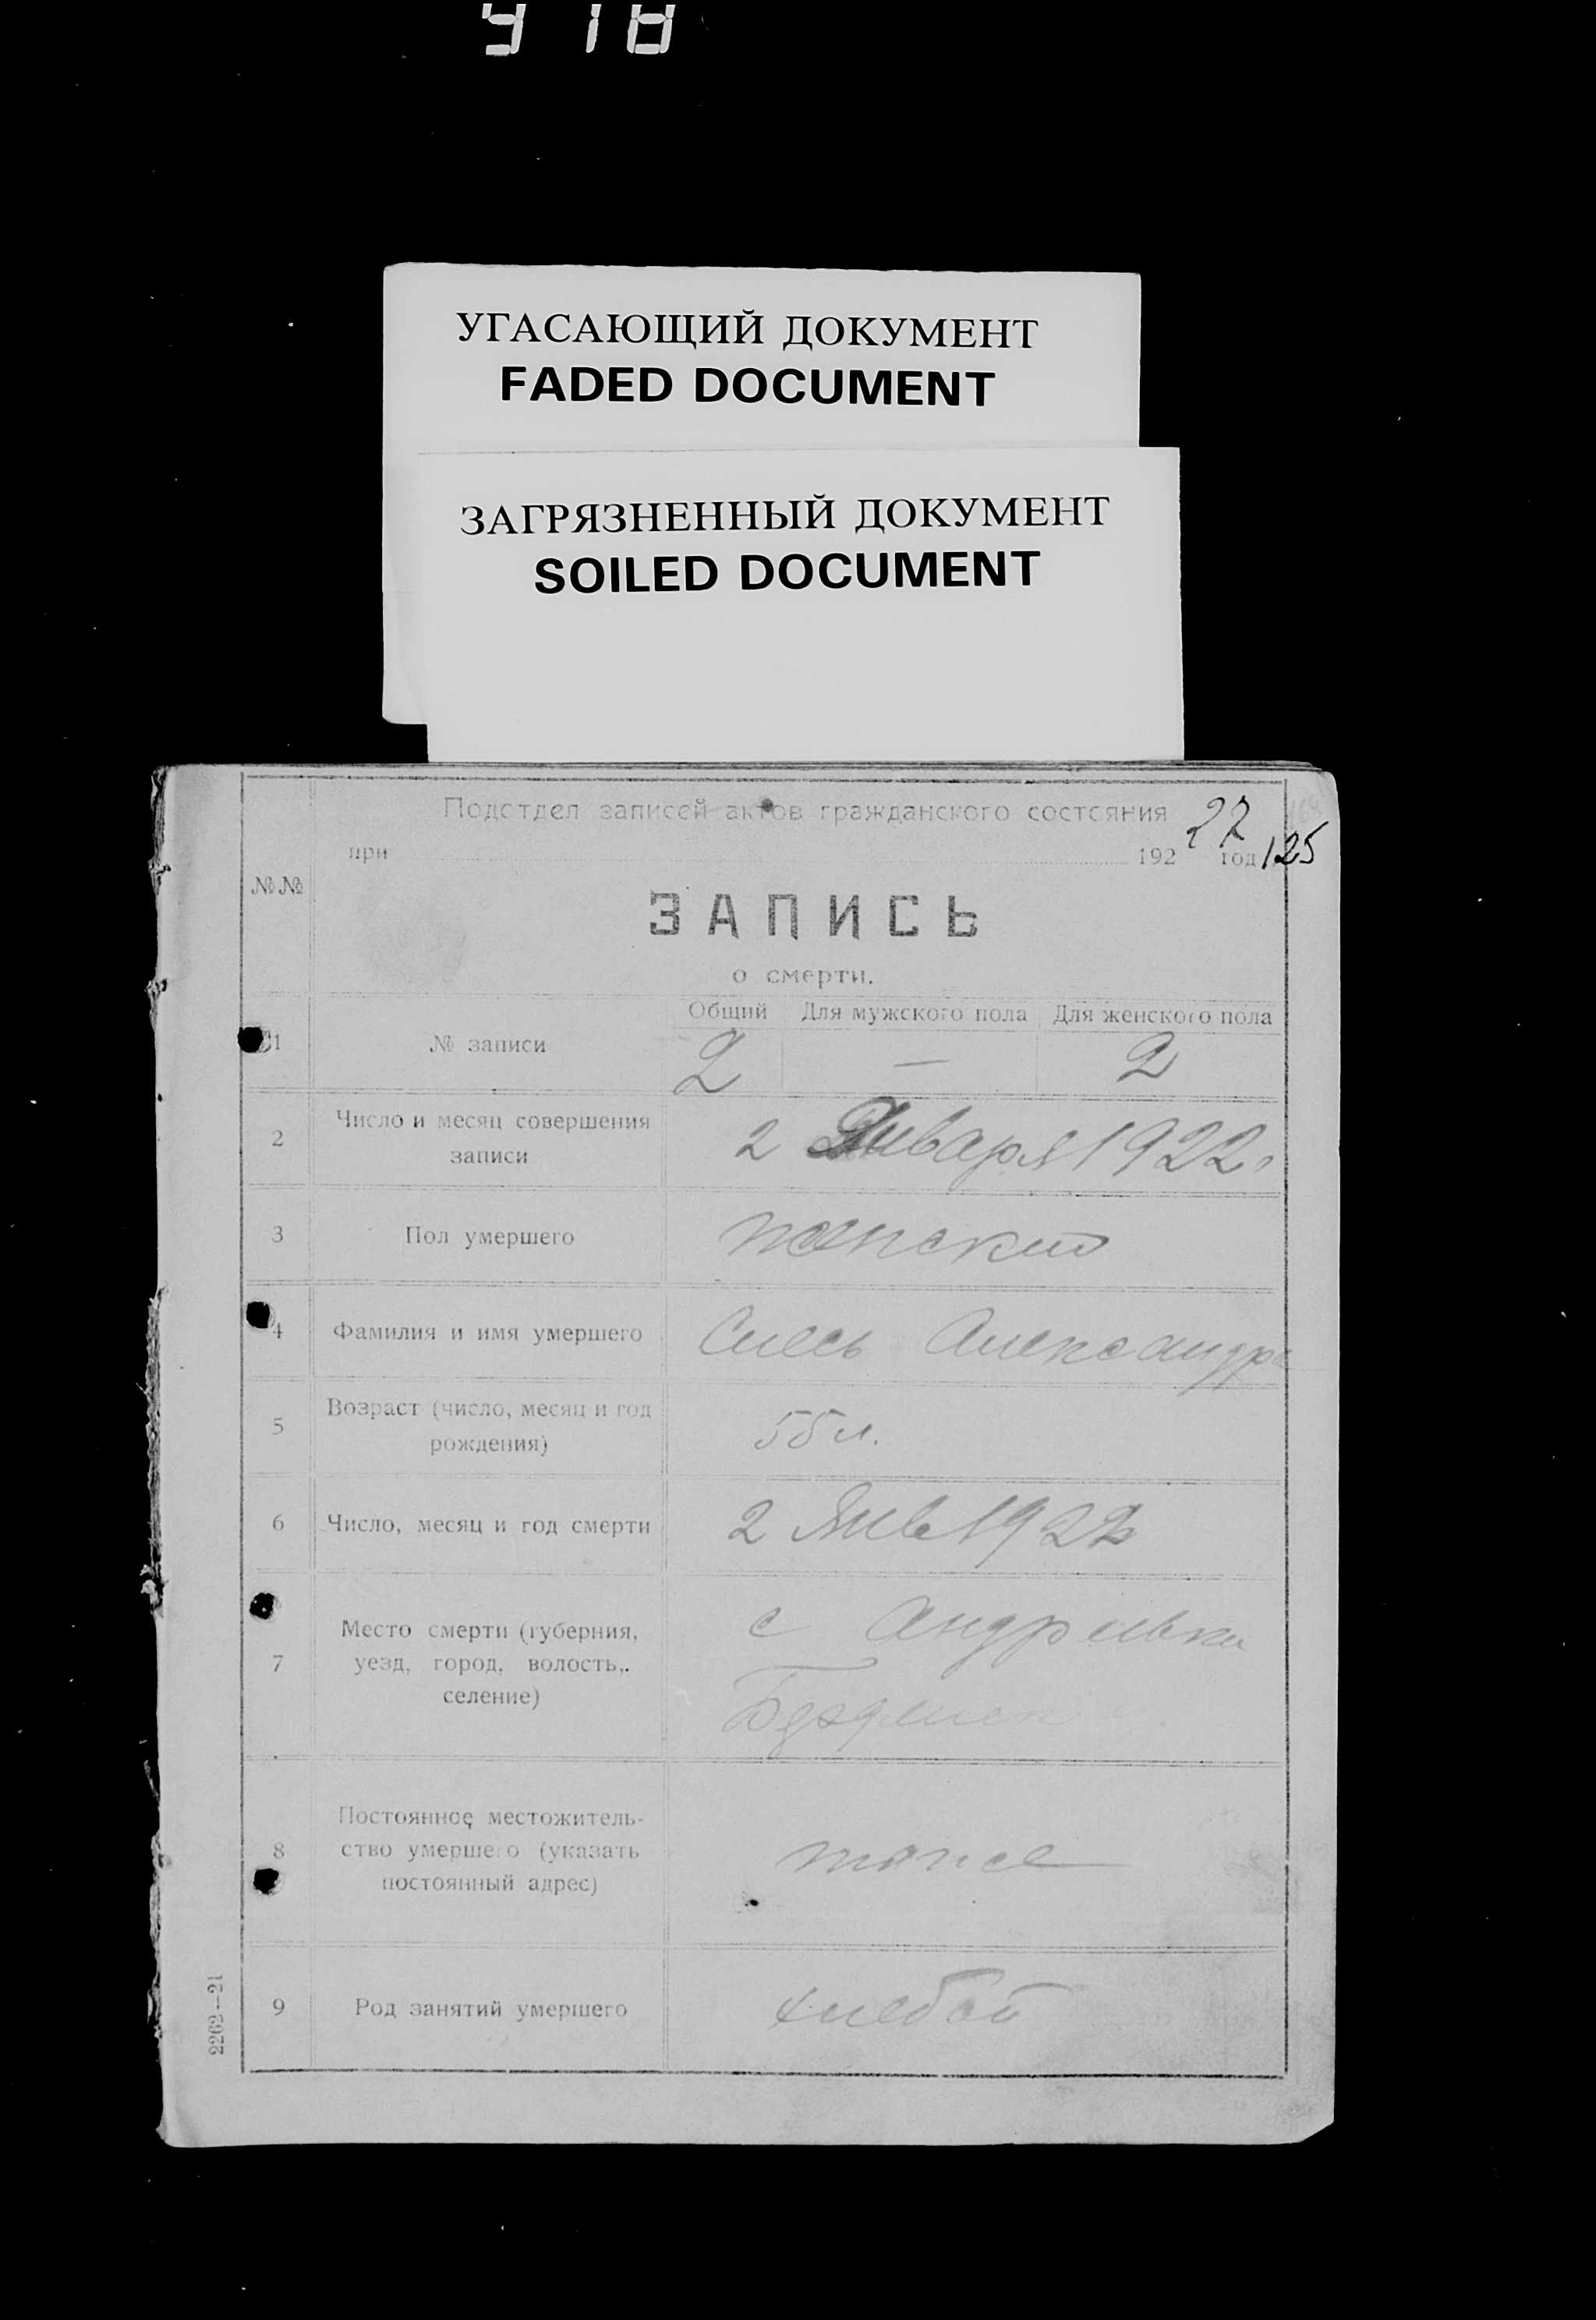 918
УГАСАЮЩИЙ ДОКУМЕНТ
FADED DOCUMENT
ЗАГРЯЗНЕННЫЙ ДОКУМЕНТ
SOILED DOCUMENT
Подотдел записей актов гражданского состояния
при 192 22 год 125
№№
ЗАПИСЬ
о смерти.
Общий Для мужского пола Для женского пола
1 № записи 2 — 2
2 Число и месяц совершения записи 2 Января 1922
3 Пол умершего женский
4 Фамилия и имя умершего Александра
5 Возраст (число, месяц и год рождения) 55 л.
6 Число, месяц и год смерти 2 Янв 1922
7 Место смерти (губерния, уезд, город, волость, селение) с Андриевка
8 Постоянное местожитель-
ство умершего (указать
постоянный адрес) тоже
9 Род занятий умершего
2262—21